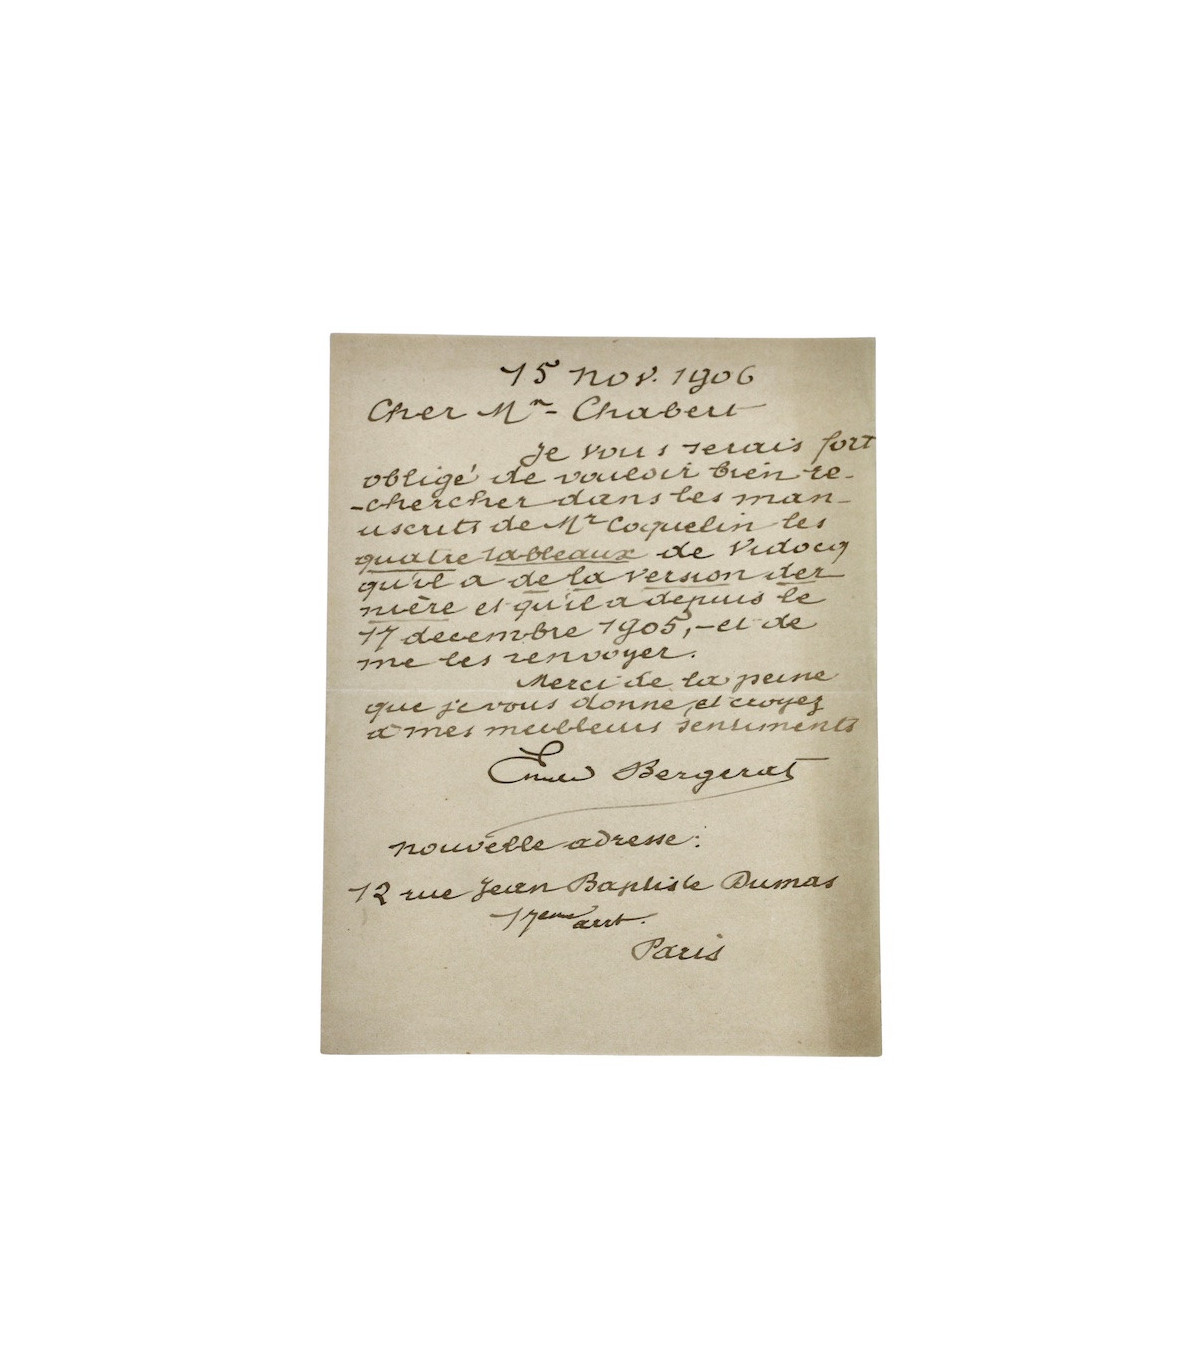 15 nov. 1906
Cher Mr Chabert
Je vous serais fort
obligé de vouloir bien re-
-chercher dans les man-
uscrits de Mr Coquelin les
quatre tableaux de Vidocq
qu'il a de la version der
nière et qu'il a depuis le
17 decembre 1905, - et de
me les renvoyer.
Merci de la peine
que je vous donne, et croyez
à mes meilleurs sentiments
Emile Bergerat
nouvelle adresse:
12 rue Jean Baptiste Dumas
17eme arrt.
Paris